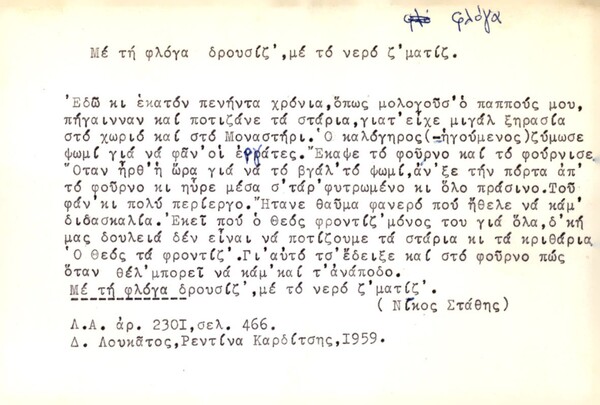 φλόγα
Μέ τή φλόγα δρουσίζ',μέ τό νερό ζ'ματίζ.
'Εδῶ κι ἑκατόν πενήντα χρόνια,ὅπως μολογοῦσ'ὁ παπποὺς μου,
πήγαινναν καί ποτιζάνε τά στάρια,γιατ'εἶχε μιγάλ ξηρασία
στό χωριό καί στό Μοναστήρι.Ὁ καλόγηρος(=ἡγούμενος)ζύμωσε
ψωμί γιά νά φᾶν'οἱ ἐργάτες.Ἔκαψε τό φοῦρνο καί τό φούρνισε
Ὅταν ἦρθ'ἡ ὥρα γιά νά τό βγάλ'τό ψωμί,ἄν'ξε τήν πόρτα ἀπ'
τό φοῦρνο κι ηὗρε μέσα σ'τάρ'φυτρωμένο κι ὅλο πράσινο.Τοῦ
φάν'κι πολύ περίεργο.Ἤτανε θαῦμα φανερό πού ἤθελε νά κάμ'
διδασκαλία.Ἐκεῖ πού ὁ Θεός φροντίζ'μόνος του γιά ὅλα,δ'κή
μας δουλειά δέν εἶναι νά ποτίζουμε τά στάρια κι τά κριθάρια
Ὁ Θεός τά φροντίζ'.Γι'αὐτό τσ'ἔδειξε καί στό φοῦρνο πώς
ὅταν θέλ'μπορεῖ νά κάμ'καί τ'ἀνάποδο.
Μέ τή φλόγα δρουσίζ',μέ τό νερό ζ'ματίζ'.
( Νίκος Στάθης)
Λ.Α. ἀρ. 2301,σελ. 466.
Δ. Λουκᾶτος,Ρεντίνα Καρδίτσης,1959.